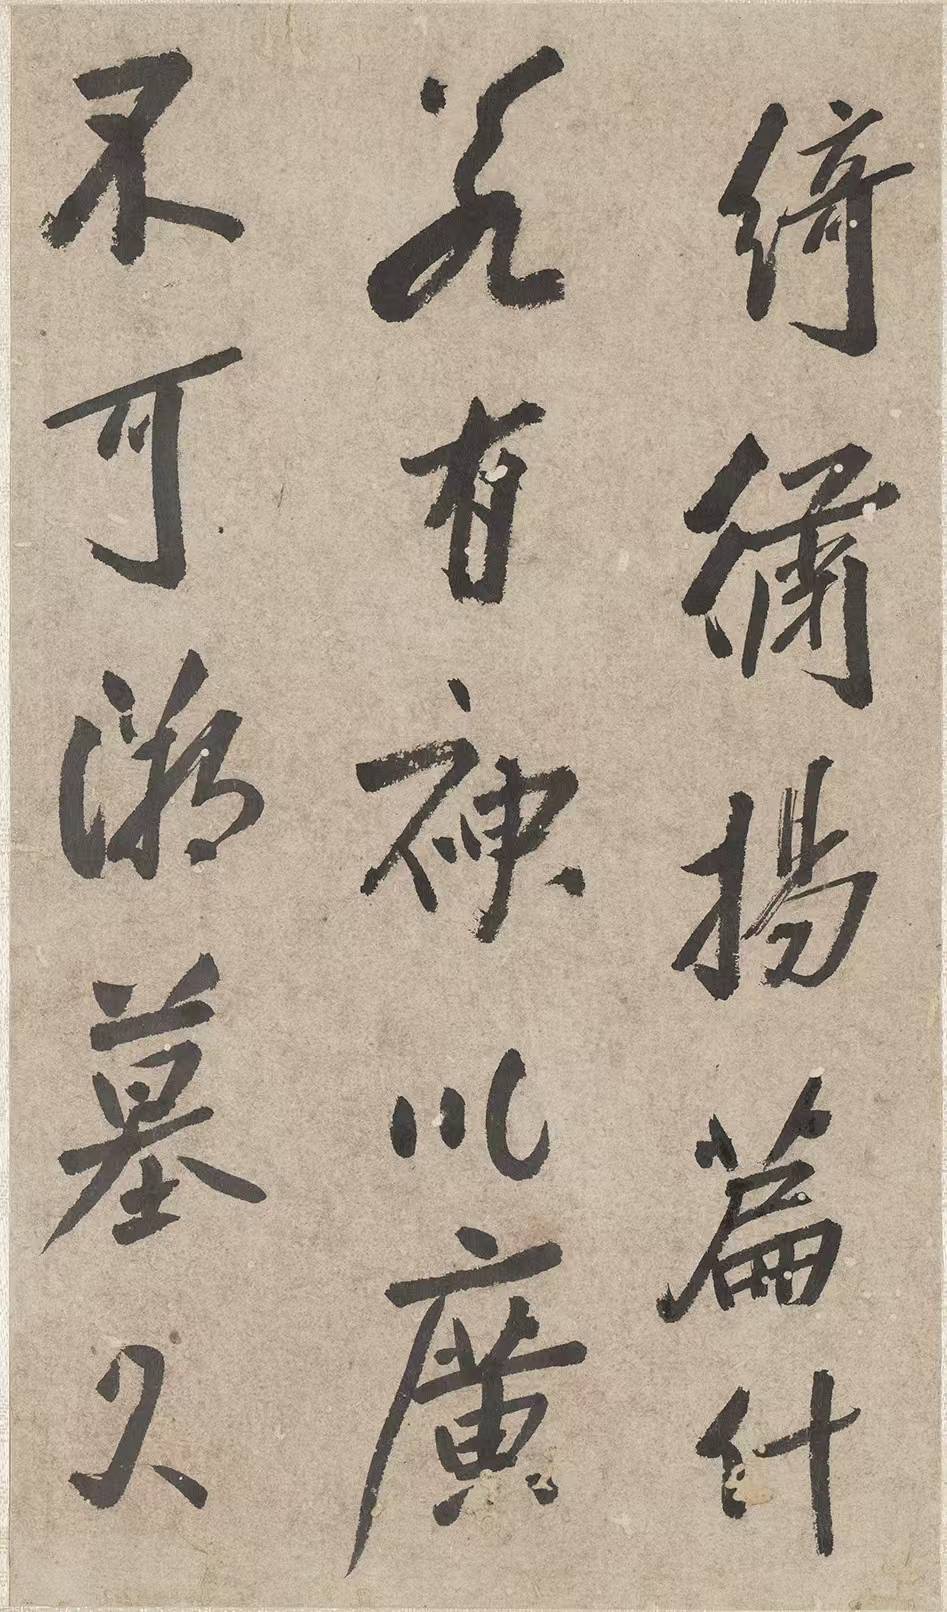 綺繡揚篇什
若有神以廣
不可墓久